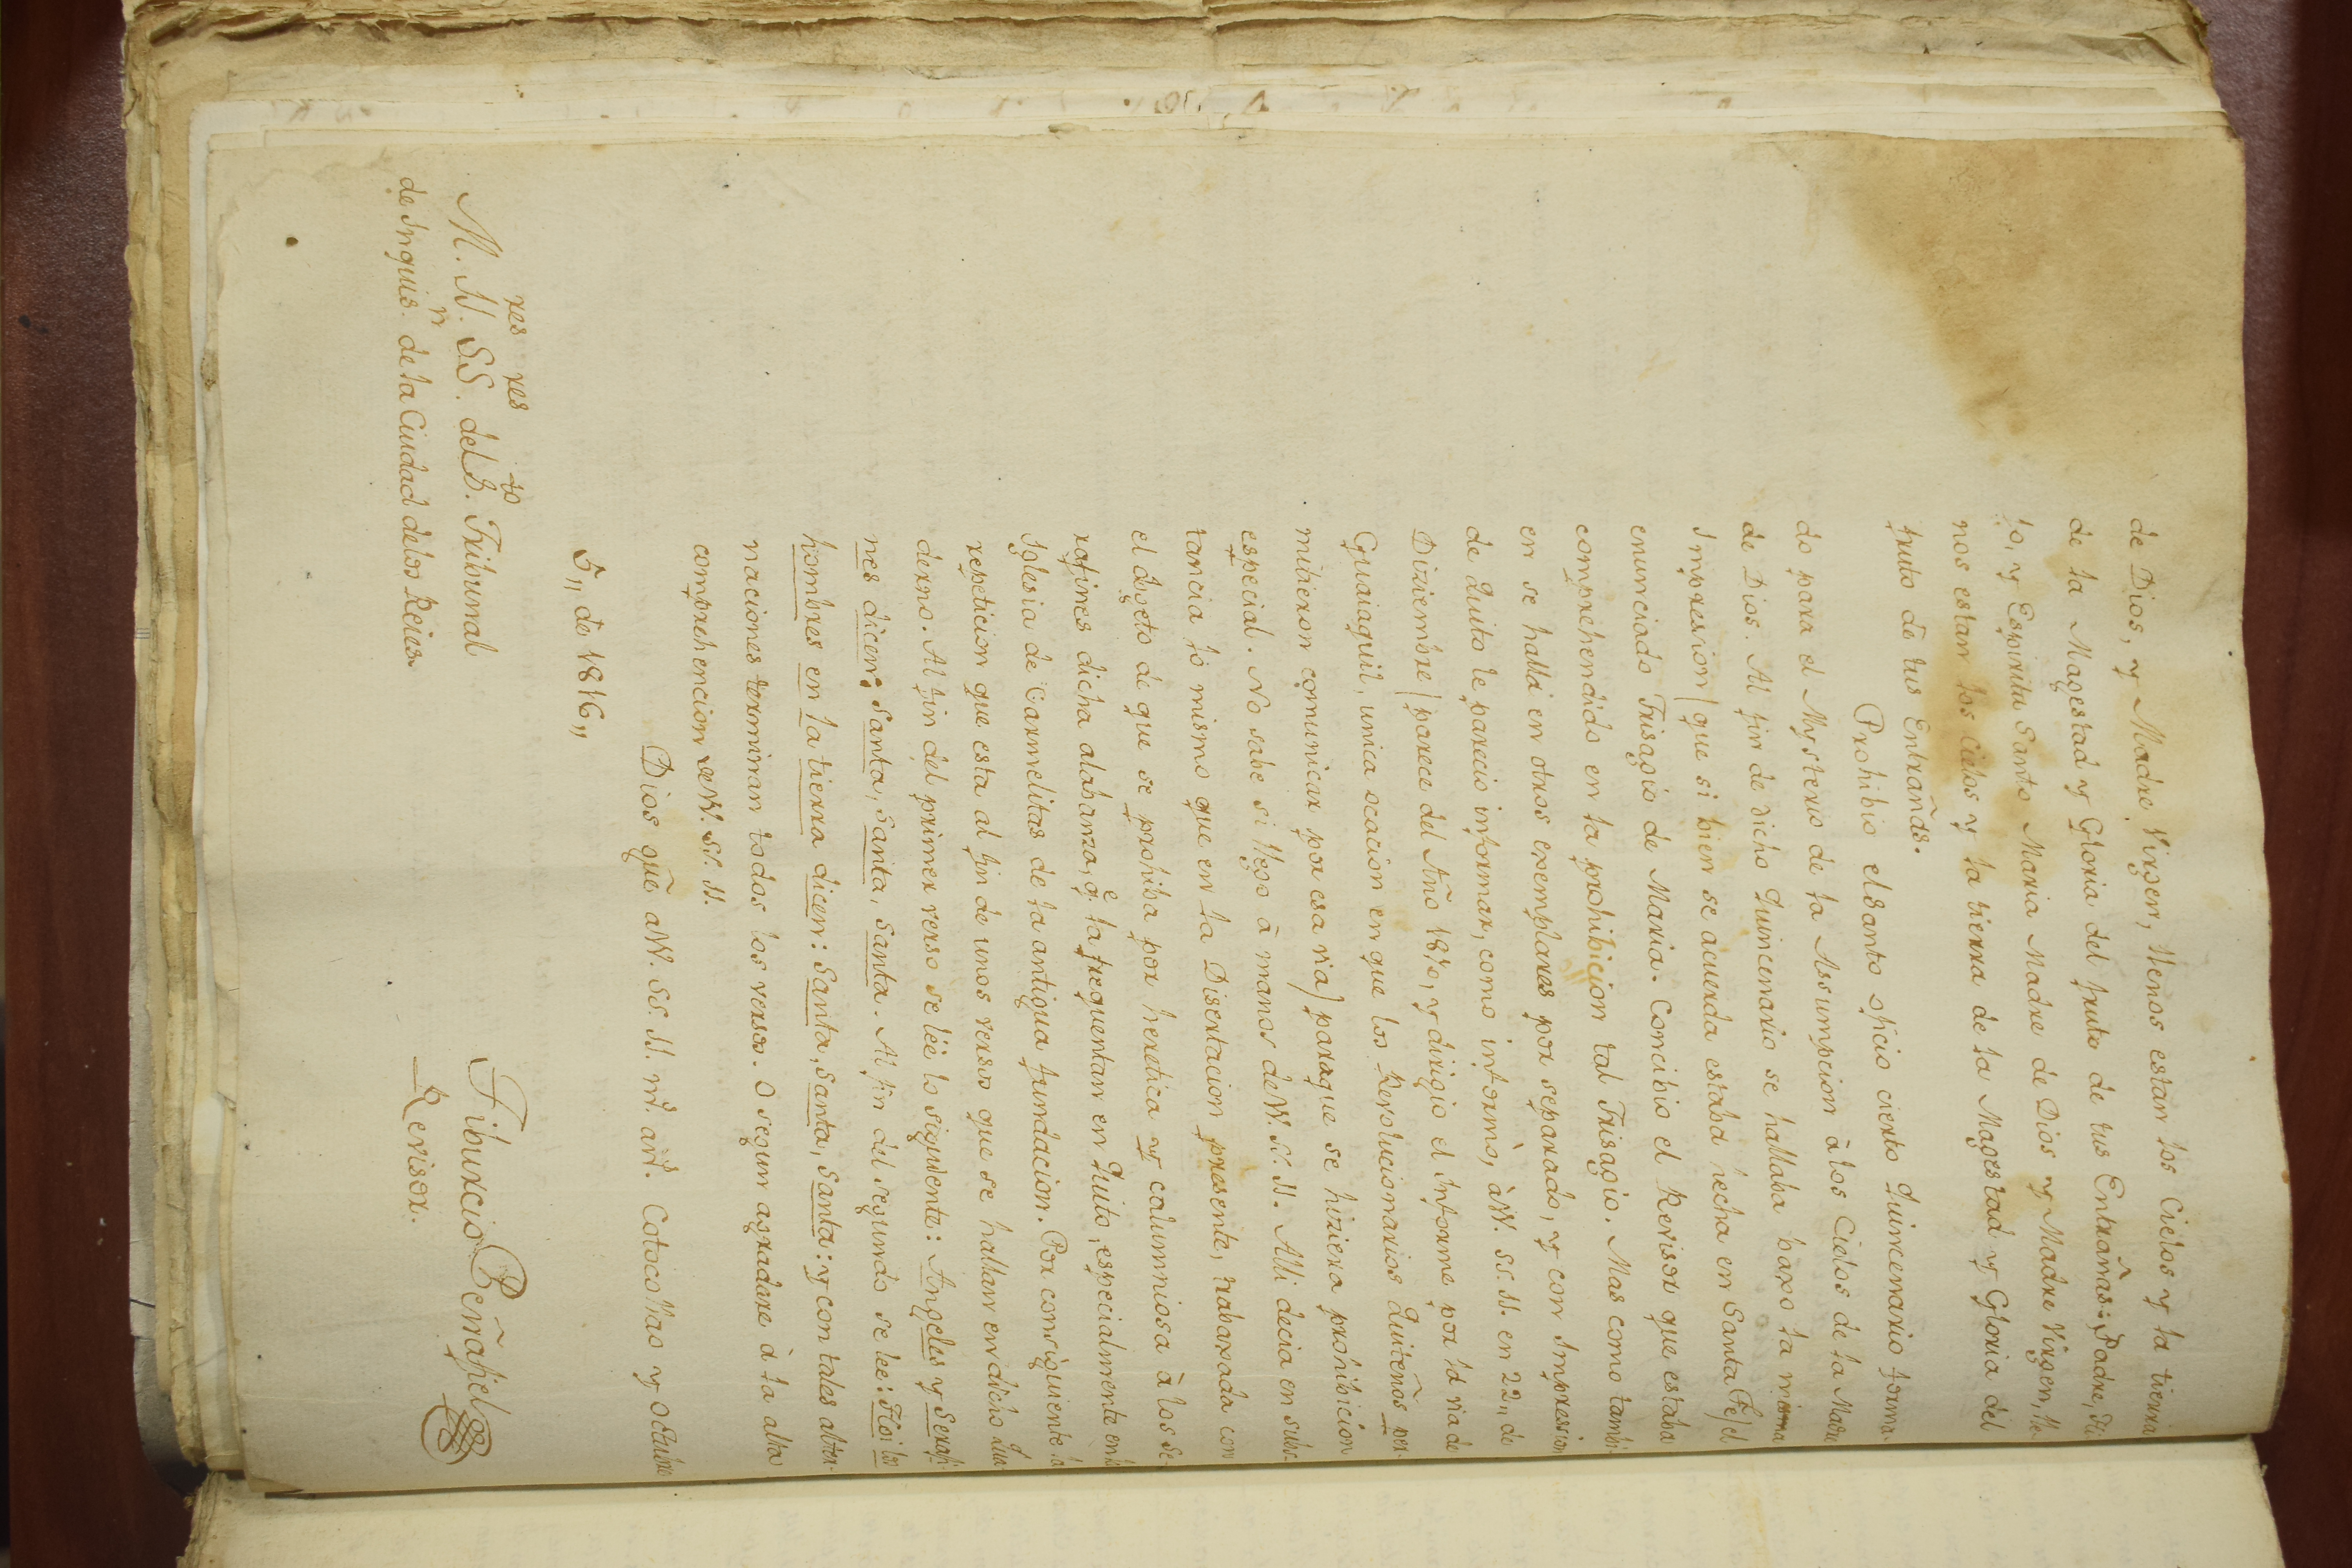 de Dios, y Madre Virgen, llenos estan los Cielos y la tierra
de la Magestad y Gloria del fruto de tus Entrañas: Padre, Hi-
jo, y Espiritu Santo Maria Madre de Dios y Madre Virgen, lle-
nos estan los Cielos y la tierra de la Magestad y Gloria del
fruto de tus Entrañas.
Prohibio el Santo oficio cierto Quincenario forma-
do para el Mysterio de la Assumpcion à los Cielos de la Madre
de Dios. Al fin de dicho Quincenario se hallaba baxo la misma
Impresion (que si bien se acuerda estaba hecha en Santa Fe) el
enunciado Trisagio de Maria. Concibio el Revisor que estaba
comprehendido en la prohibicion tal Trisagio. Mas como tambi-
en se halla en otros exemplares por separado, y con Impresion
de Quito le parecio informar, como informò, à VV. SS. Il. en 22,, de
Diziembre (parece del Año 1810, y dirigio el Informe por la via de
Guaiaquil, unica ocacion en que los Revolucionarios Quiteños per-
mitieron comunicar por esa via) paraque se hiziera prohibicion
especial. No sabe si llego à manos de VV. SS. Il. Alli decia en subs-
tancia lo mismo que en la Disertacion presente, trabaxada con
el obgeto de que se prohiba por heretica y calumniosa à los Se-
rafines dicha alabanza, q.e la frequentan en Quito, especialmente en la
Iglesia de Carmelitas de la antigua fundacion. Por consiguiente la
repeticion que esta al fin de unos versos que se hallan en dicho Qua-
derno. Al fin del primer verso se léé lo siguiente: Angeles y Serafi-
nes dicen: Santa, Santa, Santa. Al fin del segundo se lee: Hoi los
hombres en la tierra dicen: Santa, Santa, Santa: y con tales alter-
naciones terminan todos los versos. O segun agradare à la alta
comprehencion de VV. SS. Il.
Dios güe à VV. SS. Il. m.s an.s Cotocollao y Octubre
5,, de 1816,,
M. Il. SS.res res del S.to Tribunal
de Inquis.n de la Ciudad de los Reies.
Tiburcio Peñafiel
Revisor.